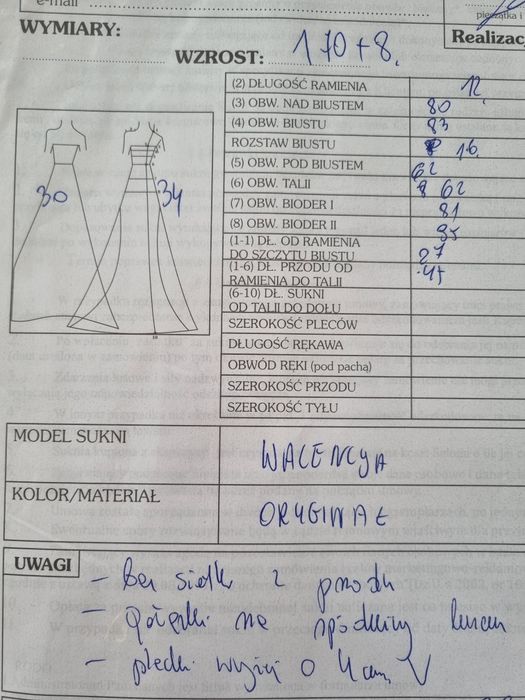 e-mail
pieczątka i
WYMIARY:
Realizac
WZROST: 170+8.
(2) DŁUGOŚĆ RAMIENIA 12.
(3) OBW. NAD BIUSTEM 80
(4) OBW. BIUSTU 83
ROZSTAW BIUSTU 16.
(5) OBW. POD BIUSTEM 62
(6) OBW. TALII 62
(7) OBW. BIODER I 81
(8) OBW. BIODER II 95
(1-1) DŁ. OD RAMIENIA
DO SZCZYTU BIUSTU 27
(1-6) DŁ. PRZODU OD
RAMIENIA DO TALII 45
(6-10) DŁ. SUKNI
OD TALII DO DOŁU
SZEROKOŚĆ PLECÓW
DŁUGOŚĆ RĘKAWA
OBWÓD RĘKI (pod pachą)
SZEROKOŚĆ PRZODU
SZEROKOŚĆ TYŁU
30
34
MODEL SUKNI WALENCYA
KOLOR/MATERIAŁ ORYGINAŁ
UWAGI
- Bez siatki z przodu
- na spódnicy
- plecki wyżej o 4cm